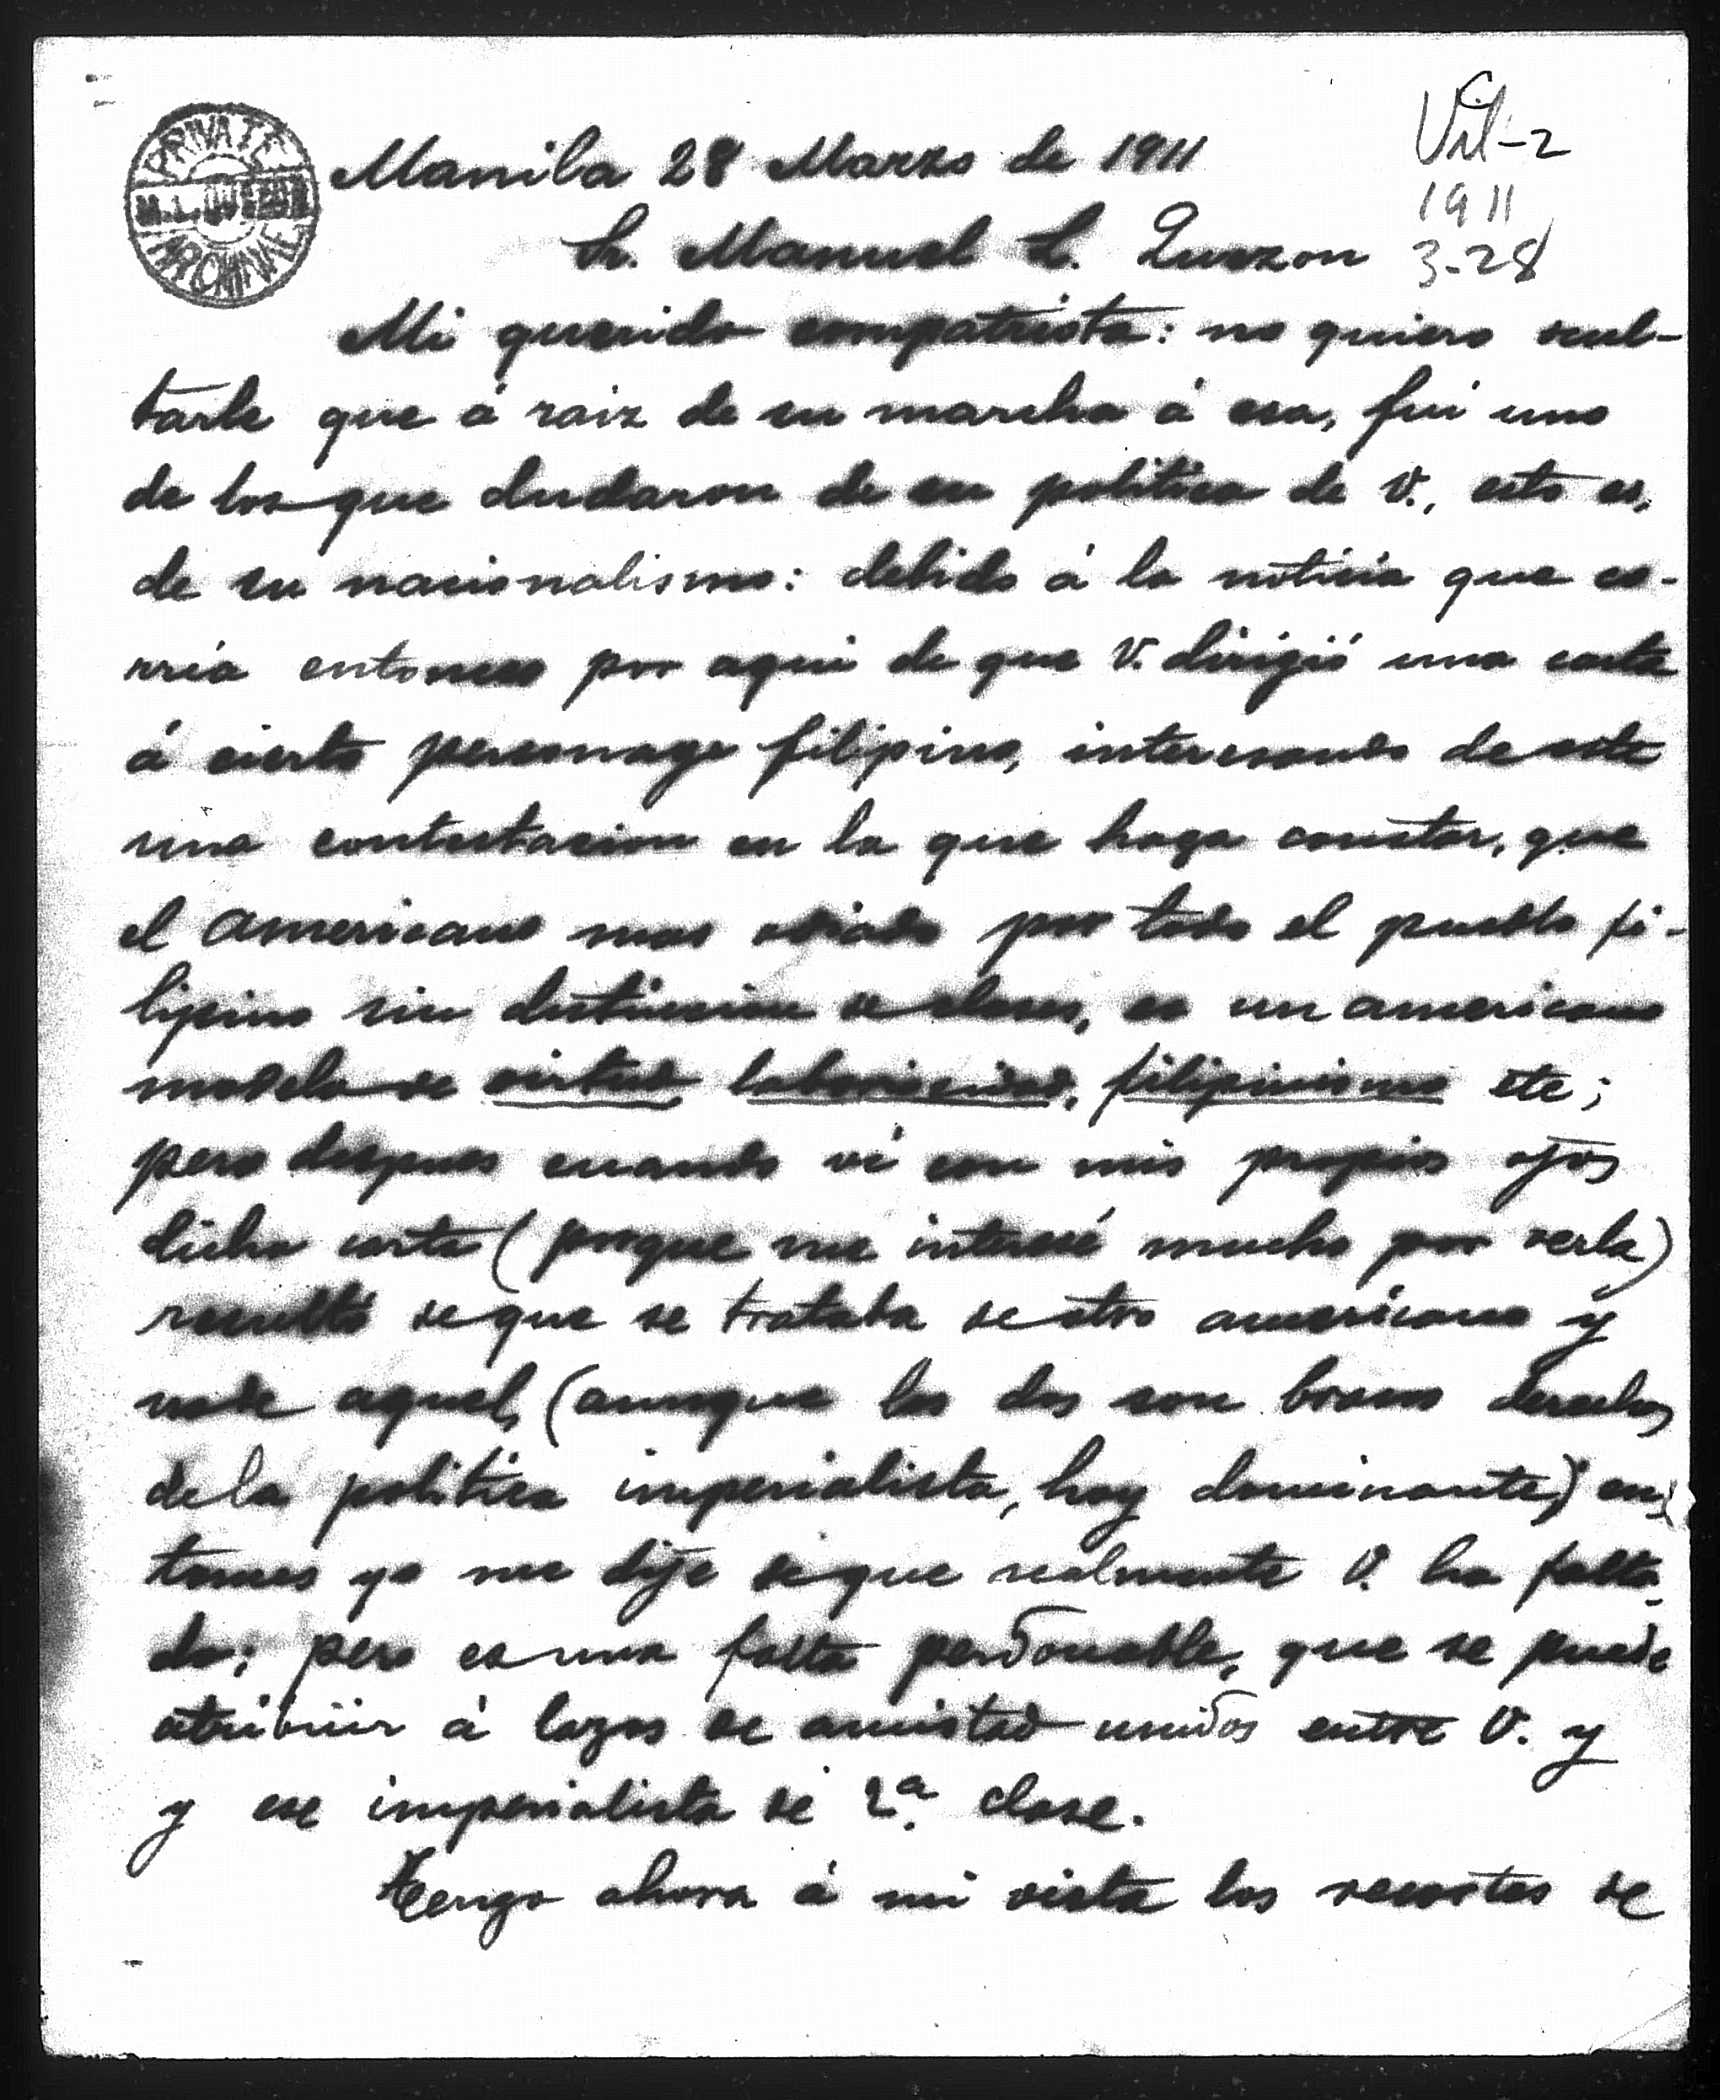 PRIVATE
M. L. QUEZON
ARCHIVE
Vil-2
1911
3-28
Manila 28 Marzo de 1911
Sr. Manuel L. Quezon
Mi querido compatriota: no quiero ocul-
tarle que á raiz de su marcha á esa, fui uno
de los que dudaron de su politica de V., esto es,
de su nacionalismo: debido á la noticia que co-
rria entonces por aqui de que V. dirigió una carta
á cierto personage filipino, interesando de este
una contestacion en la que haga constar, que
el americano mas odiado por todo el pueblo fi-
lipino sin distincion de clases, es un americano
modelo de virtud, laboriosidad, filipinismo etc;
pero despues cuando vi con mis propios ojos
dicha carta (porque me interesé mucho por verla)
resultó de que se trataba de otro americano y
no de aquel, (aunque los dos son brazos derechos
de la politica imperialista, hoy dominante) en-
tonces yo me dije de que realmente V. ha falta-
do; pero es una falta perdonable, que se puede
atribuir á lazos de amistad unidos entre V. y
y ese imperialista de 2ª clase.
Tengo ahora á mi vista los recortes de